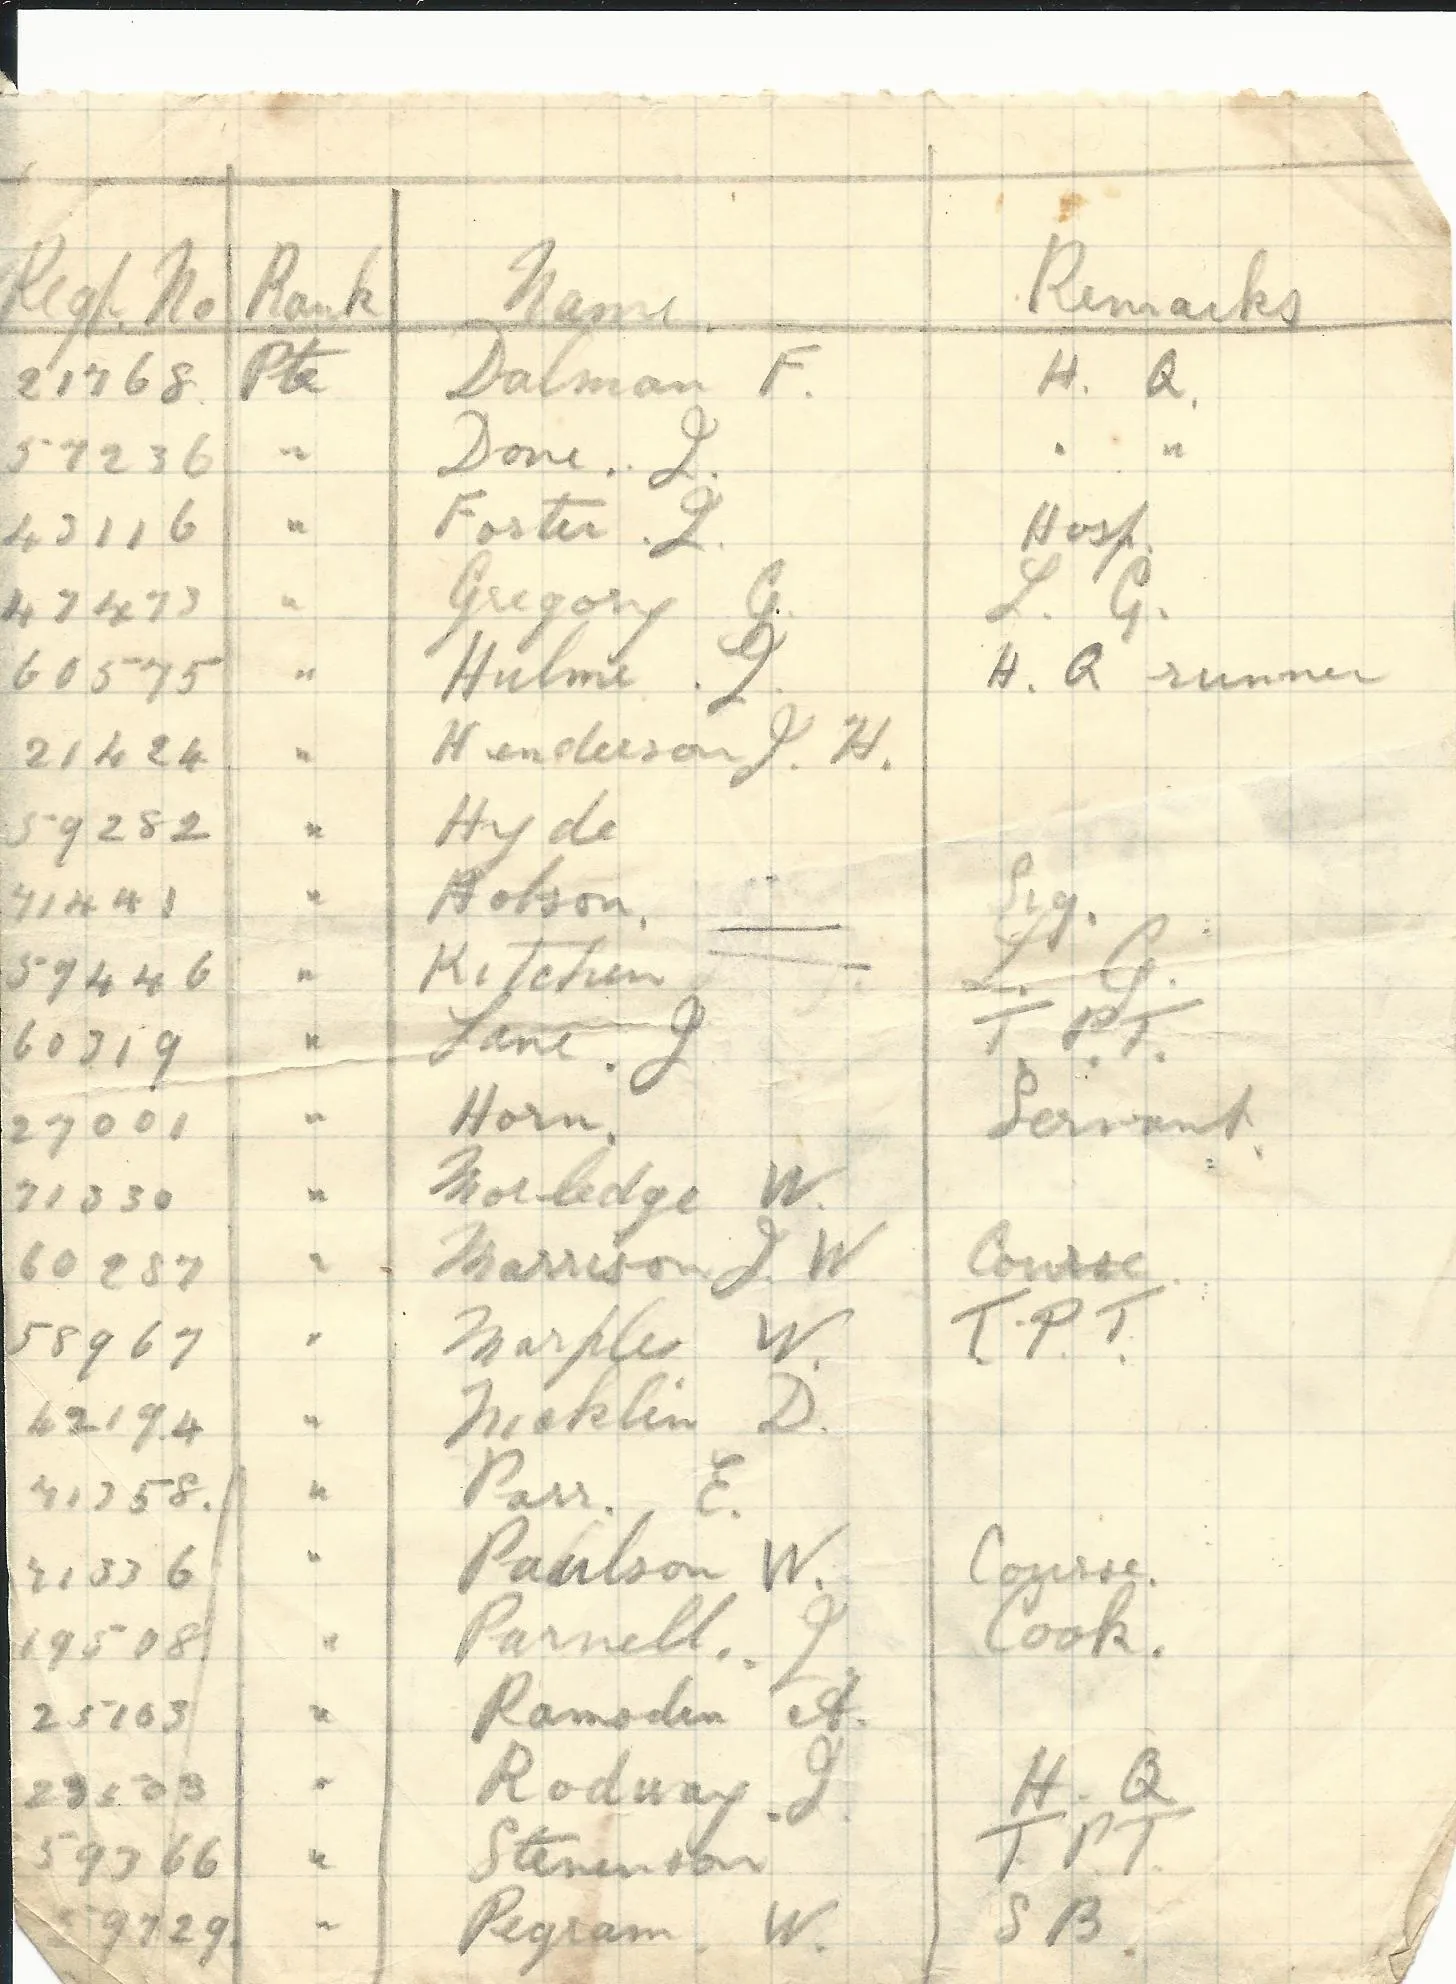 Regt. No Rank Name. Remarks
21768. Pte Dalman F. H. Q.
57236 " Done. J. " "
43116 " Foster. J. Hosp.
47473 " Gregory G. L. G.
60575 " Hulme. J. H. Q runner
21424 " Henderson J. H.
59282 " Hyde
71441 " Hobson. Sig.
59446 " Kitchen L. G.
60319 " Lane. J T. P. T.
27001 " Horn. Servant.
71330 " Morledge W.
60287 " Marrison J. W Course.
58967 " Marples W. T. P. T.
42194 " Meklin D.
71358. " Parr. E.
71336 " Paulson W. Course.
19508 " Parnell. J. Cook.
25103 " Ramsden A.
" Rodway. J. H. Q
59366 " Stevenson T. P. T.
59729. " Pegram. W. S B.